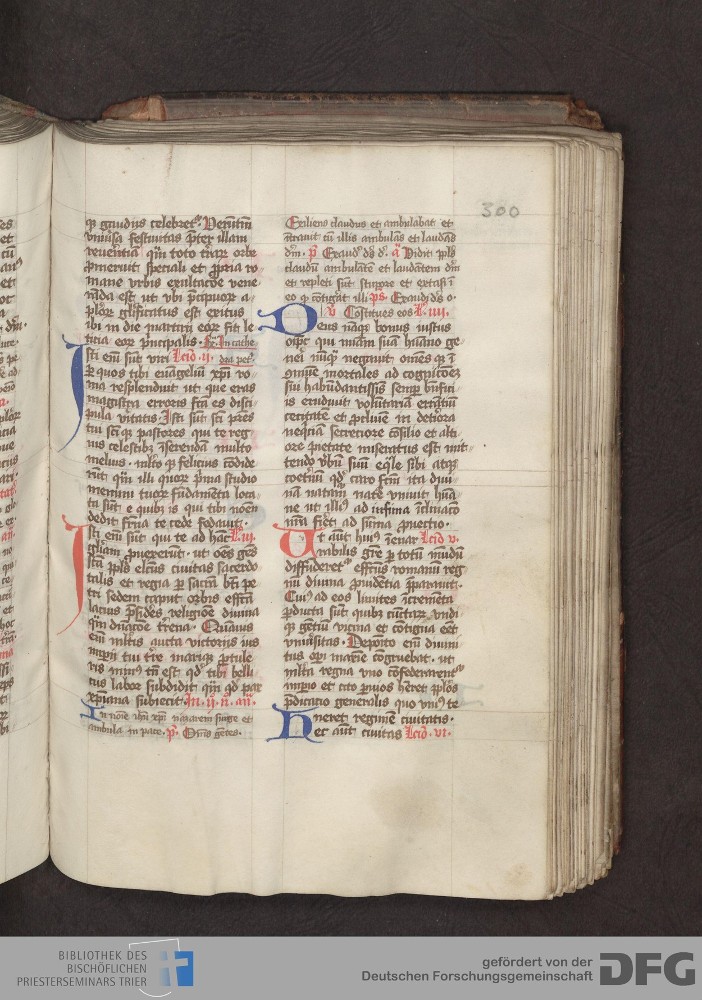 300
q̄ gaudiis celebret᷑. Verūtm̄
vniu͛sa festiuitas p̄ter illam
reuerētia q̄m toto t͛rar͛ orbe
ꝓmeruit speciali et ꝓpria ro
mane vrbis exultacōe vene
rāda est ut vbi p̄cipuor͛ a
pl̄or͛ gl̄ificatus est exitus
ibi in die martirii eor͛ sit le
ticia eor͛ p̄ncipalis. In cathe
dra pet͛.
Isti em̄ sūt viri Lc̄io .ii.
ꝑ quos tibi euāgeliū xp̄i ro
ma resplenduit ut que eras
magistra erroris fc̄ā es disci
pula v͛itatis Isti sūt sc̄i p̄res
tui sc̄iq̄ pastores qui te reg
nis celestib͛ īserendā multo
melius. mlto q̄ felicius cōdide
rūt q̄m illi quor͛ p̄ma studio
meniū tuor͛ fūdamēta loca
ta sūt e quib͛ is qui tibi nom̄
dedit fr̄na te cede fedauit.
Isti em̄ sūt qui te ad hāc Lc̄. iii.
gl̄iam ꝓuexerūt. ut ḡes
sc̄ā ppl̄s el̄cus ciuitas sacerdo
talis et regia ꝑ sacrā bt̄i pe
tri sedem caput orbis effc̄ā
lacius p̄sides religiōe diuina
q̄m dn̄acōe t͛rena. Quāuis
em̄ ml̄tis aucta victoriis ius
imperii tui t͛re mariq̄ ꝓtule
ris minus tn̄ est qd̄ tibi belli
cus labor subdidit q̄m qd̄ pax
xp̄iana subiecit. In .ii. n̄. an̄.
In noīe ih̄u xp̄i nazareni surge et
ambula in pace. p̄. Om̄s gētes.
Exiliens claudus et ambulabat et
ītrauit cū illis ambulās et laudās
dm̄. p̄. Exaudi d̄s d͛. an̄ Vidit ppl̄s
claudū ambulātē et laudātem dm̄
et repleti sūt stupore et extasi ī
eo q̄ cōtigit illi p̄s. Exaudi d̄s o.
v̄ Cōstitues eos L̄. iiii.
Deus nāq̄ bonus iustus
oīps qui miam̄ suā hūano ge
neri nūq̄ negauit om̄esq̄ ī
omune mortales ad cognicōem
sui habūdantissis semꝑ bn̄fici
is erudiuit volūtariā errātiū
cecitatē et ꝓcliuem in deteriora
neq̄ciā secretiore cōsilio et alti
ore pietate miseratus est mit
tendo v͛bū suū eq̄le sibi atq̄
coet͛nū qd̄ caro fc̄m ita diui
nā naturā nat͛e vniuit hūa
ne ut illius ad infima īclinacō
nr̄a fieret ad sūma ꝓuectio.
Ut aut̄ huius īenar Lc̄io v.
rabilis gr̄e ꝑ totū mūdū
diffūderet᷑ effc̄us romanū reg
nū diuina ꝓuidētia p̄parauit.
Cui͛ ad eos limites īcremēta
ꝑducta sūt quib͛ cūctar͛ vndi
q̄ gētiū vicina et cōtigua eēt
vniu͛sitas. Disposito em̄ diuini
tus oꝑi maxīe cōgruebat. ut
ml̄ta regna vno cōfederarent᷑
imꝑio et cito ꝑuios h͛eret ppl̄os
p̄dicatio generalis quos vni͛ te
neret regimē ciuitatis.
Hec aut̄ ciuitas Lc̄io. vi.
BIBLIOTHEK DES
BISCHÖFLICHEN
PRIESTERSEMINARS TRIER
gefördert von der
Deutschen Forschungsgemeinschaft
DFG